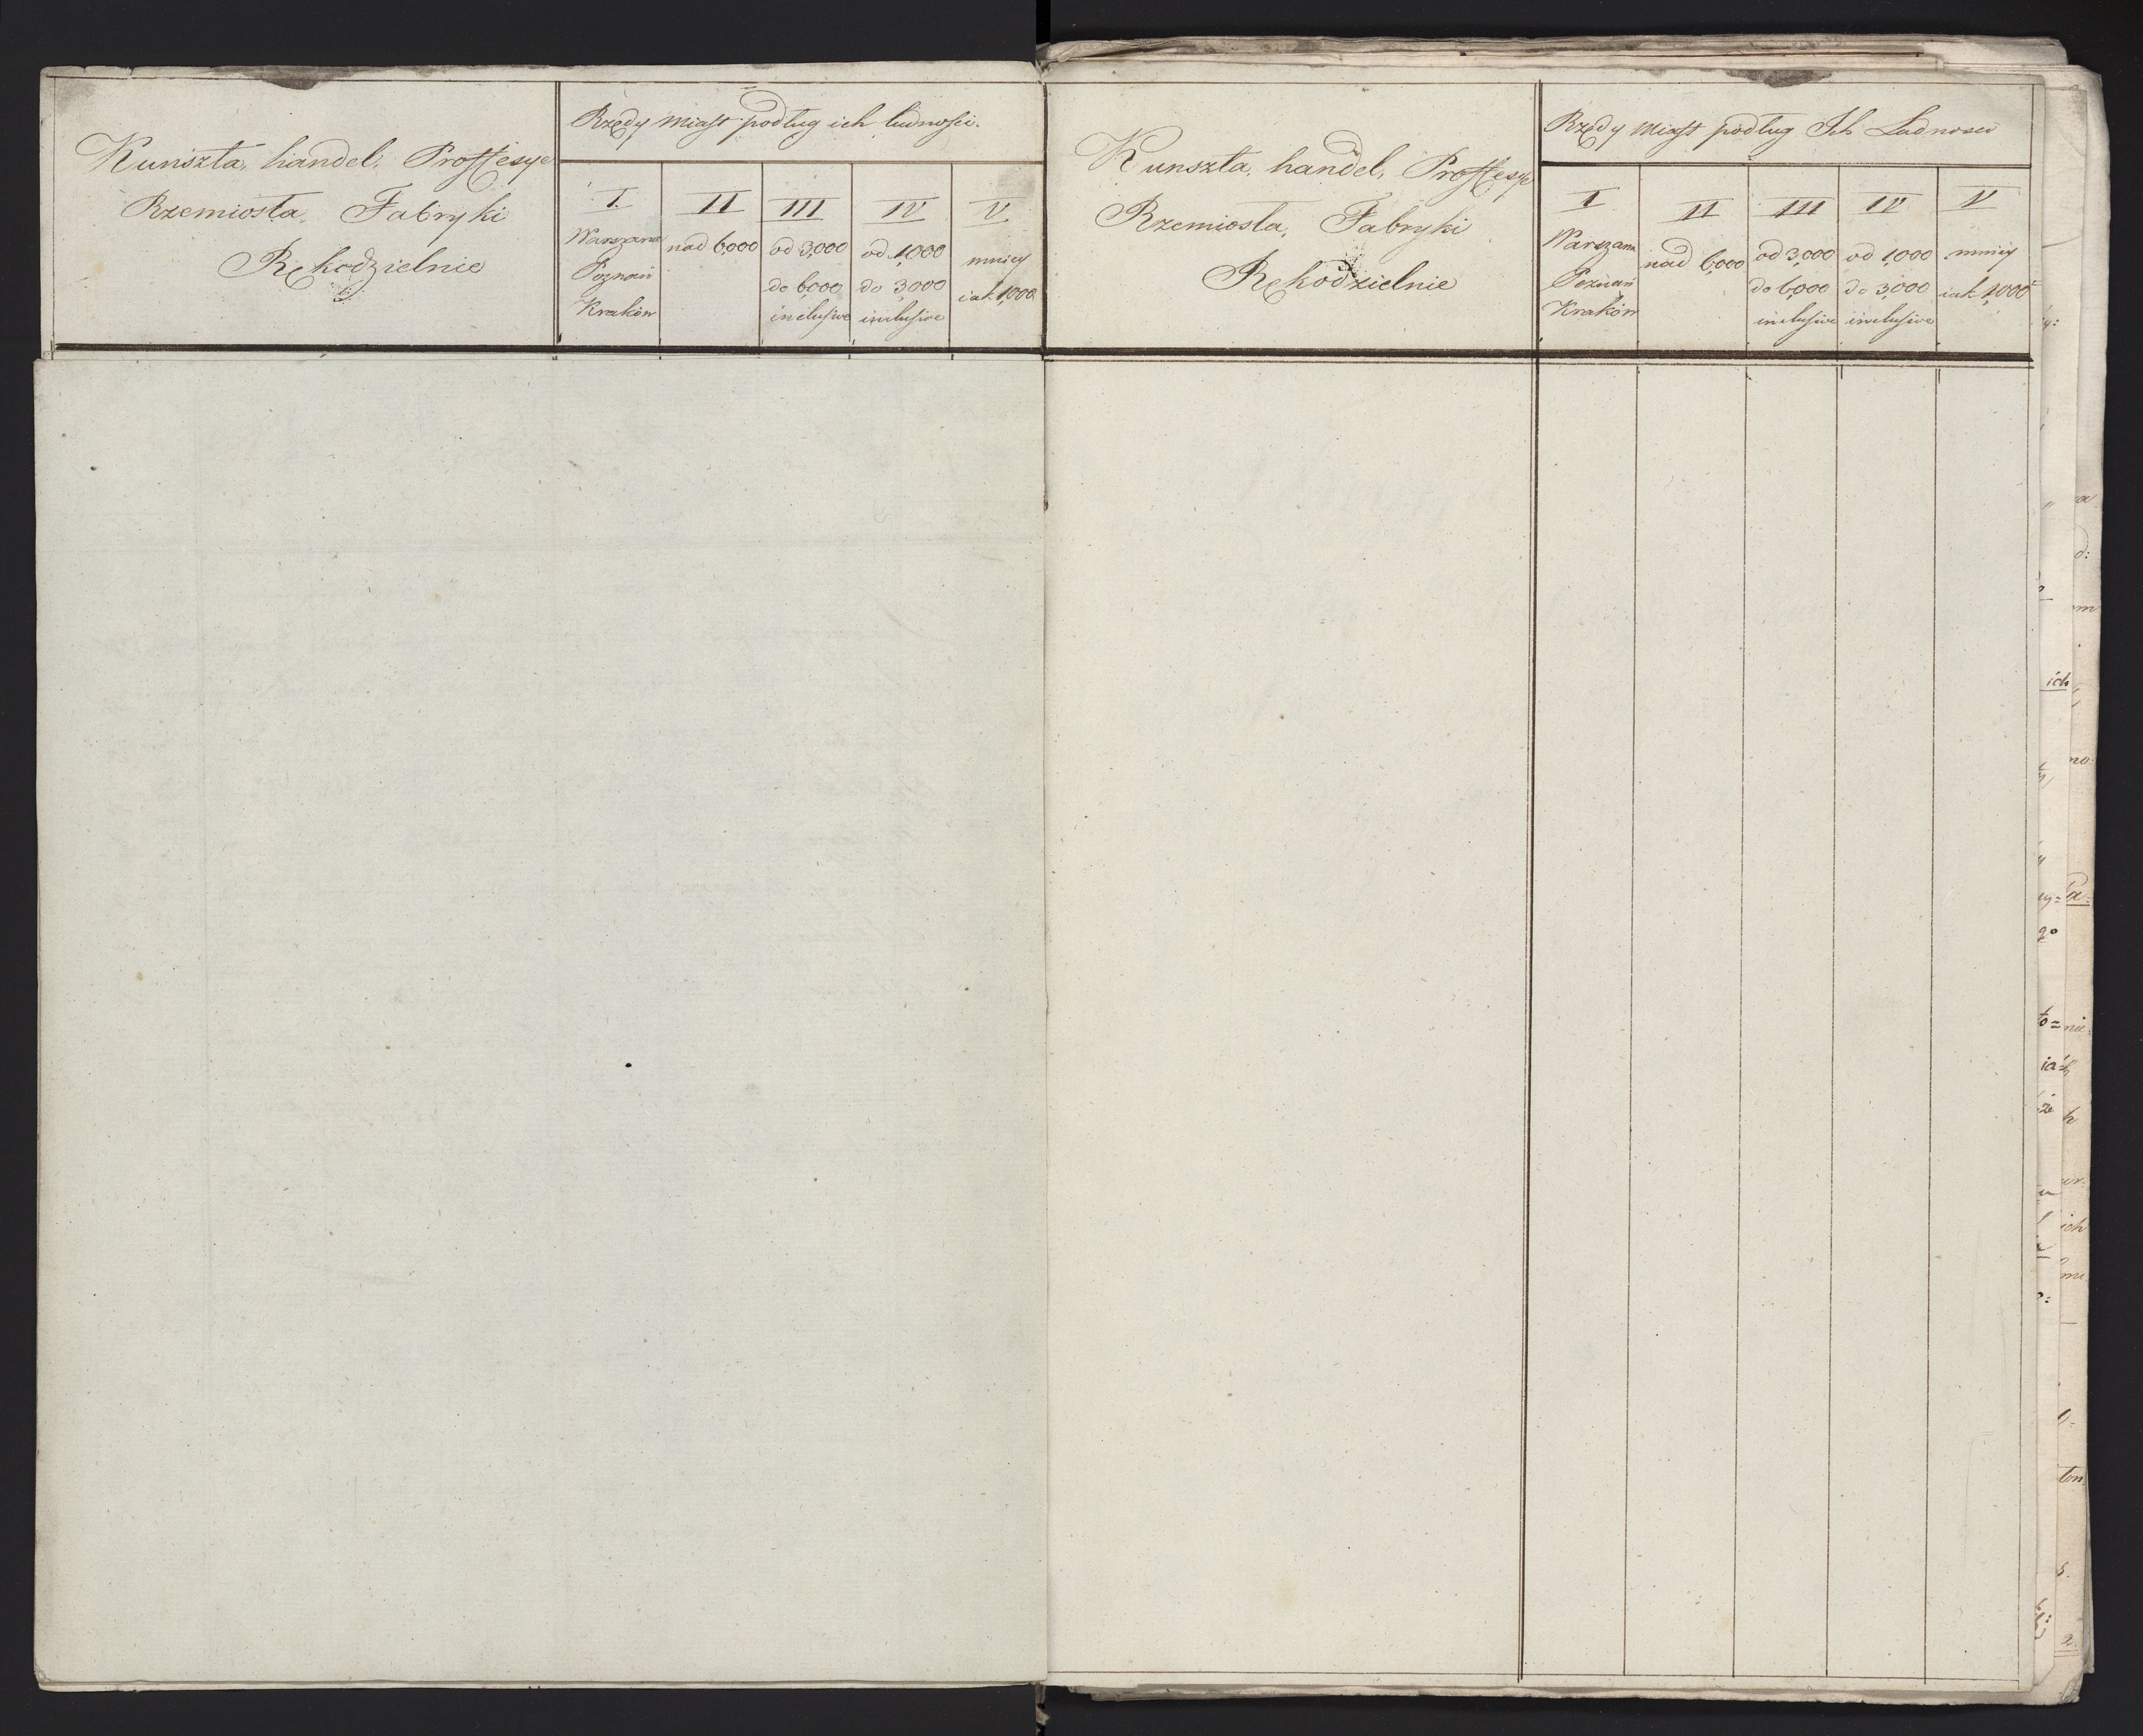 Kunszta, handel, Proffesye
Rzemiosła, Fabryki
Rękodzielnie
Rzędy Miast podług ich ludności.
I. II III IV V.
Warszawa
Poznań
Kraków
nad 6,000
od 3,000
do 6,000
inclusive
od 1,000
do 3,000
inclusive
mniey
iak 1,000
Kunszta, handel, Proffesye
Rzemiosła, Fabryki
Rękodzielnie
Rzędy Miast podług Ich Ludnosci
I II III IV V
Warszawa
Poznań
Kraków
nad 6,000
od 3,000
do 6,000
inclusive
od 1,000
do 3,000
inclusive
mniey
iak 1,000
ich